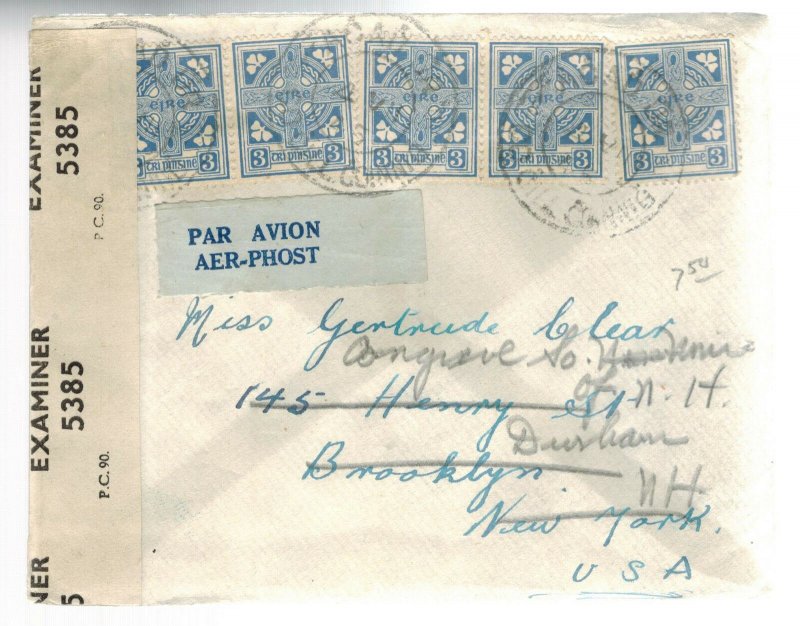 EXAMINER
5385
P.C. 90.
EXAMINER
5385
P.C. 90.
NER
5
éire
éire
éire
éire
éire
3 trí pinsine 3
3 trí pinsine 3
3 trí pinsine 3
3 trí pinsine 3
3 trí pinsine 3
PAR AVION
AER-PHOST
7 50
Miss Gertrude Clear
Congreve So.
145 Henry St
of N. H.
Durham
Brooklyn
NH
New York.
USA